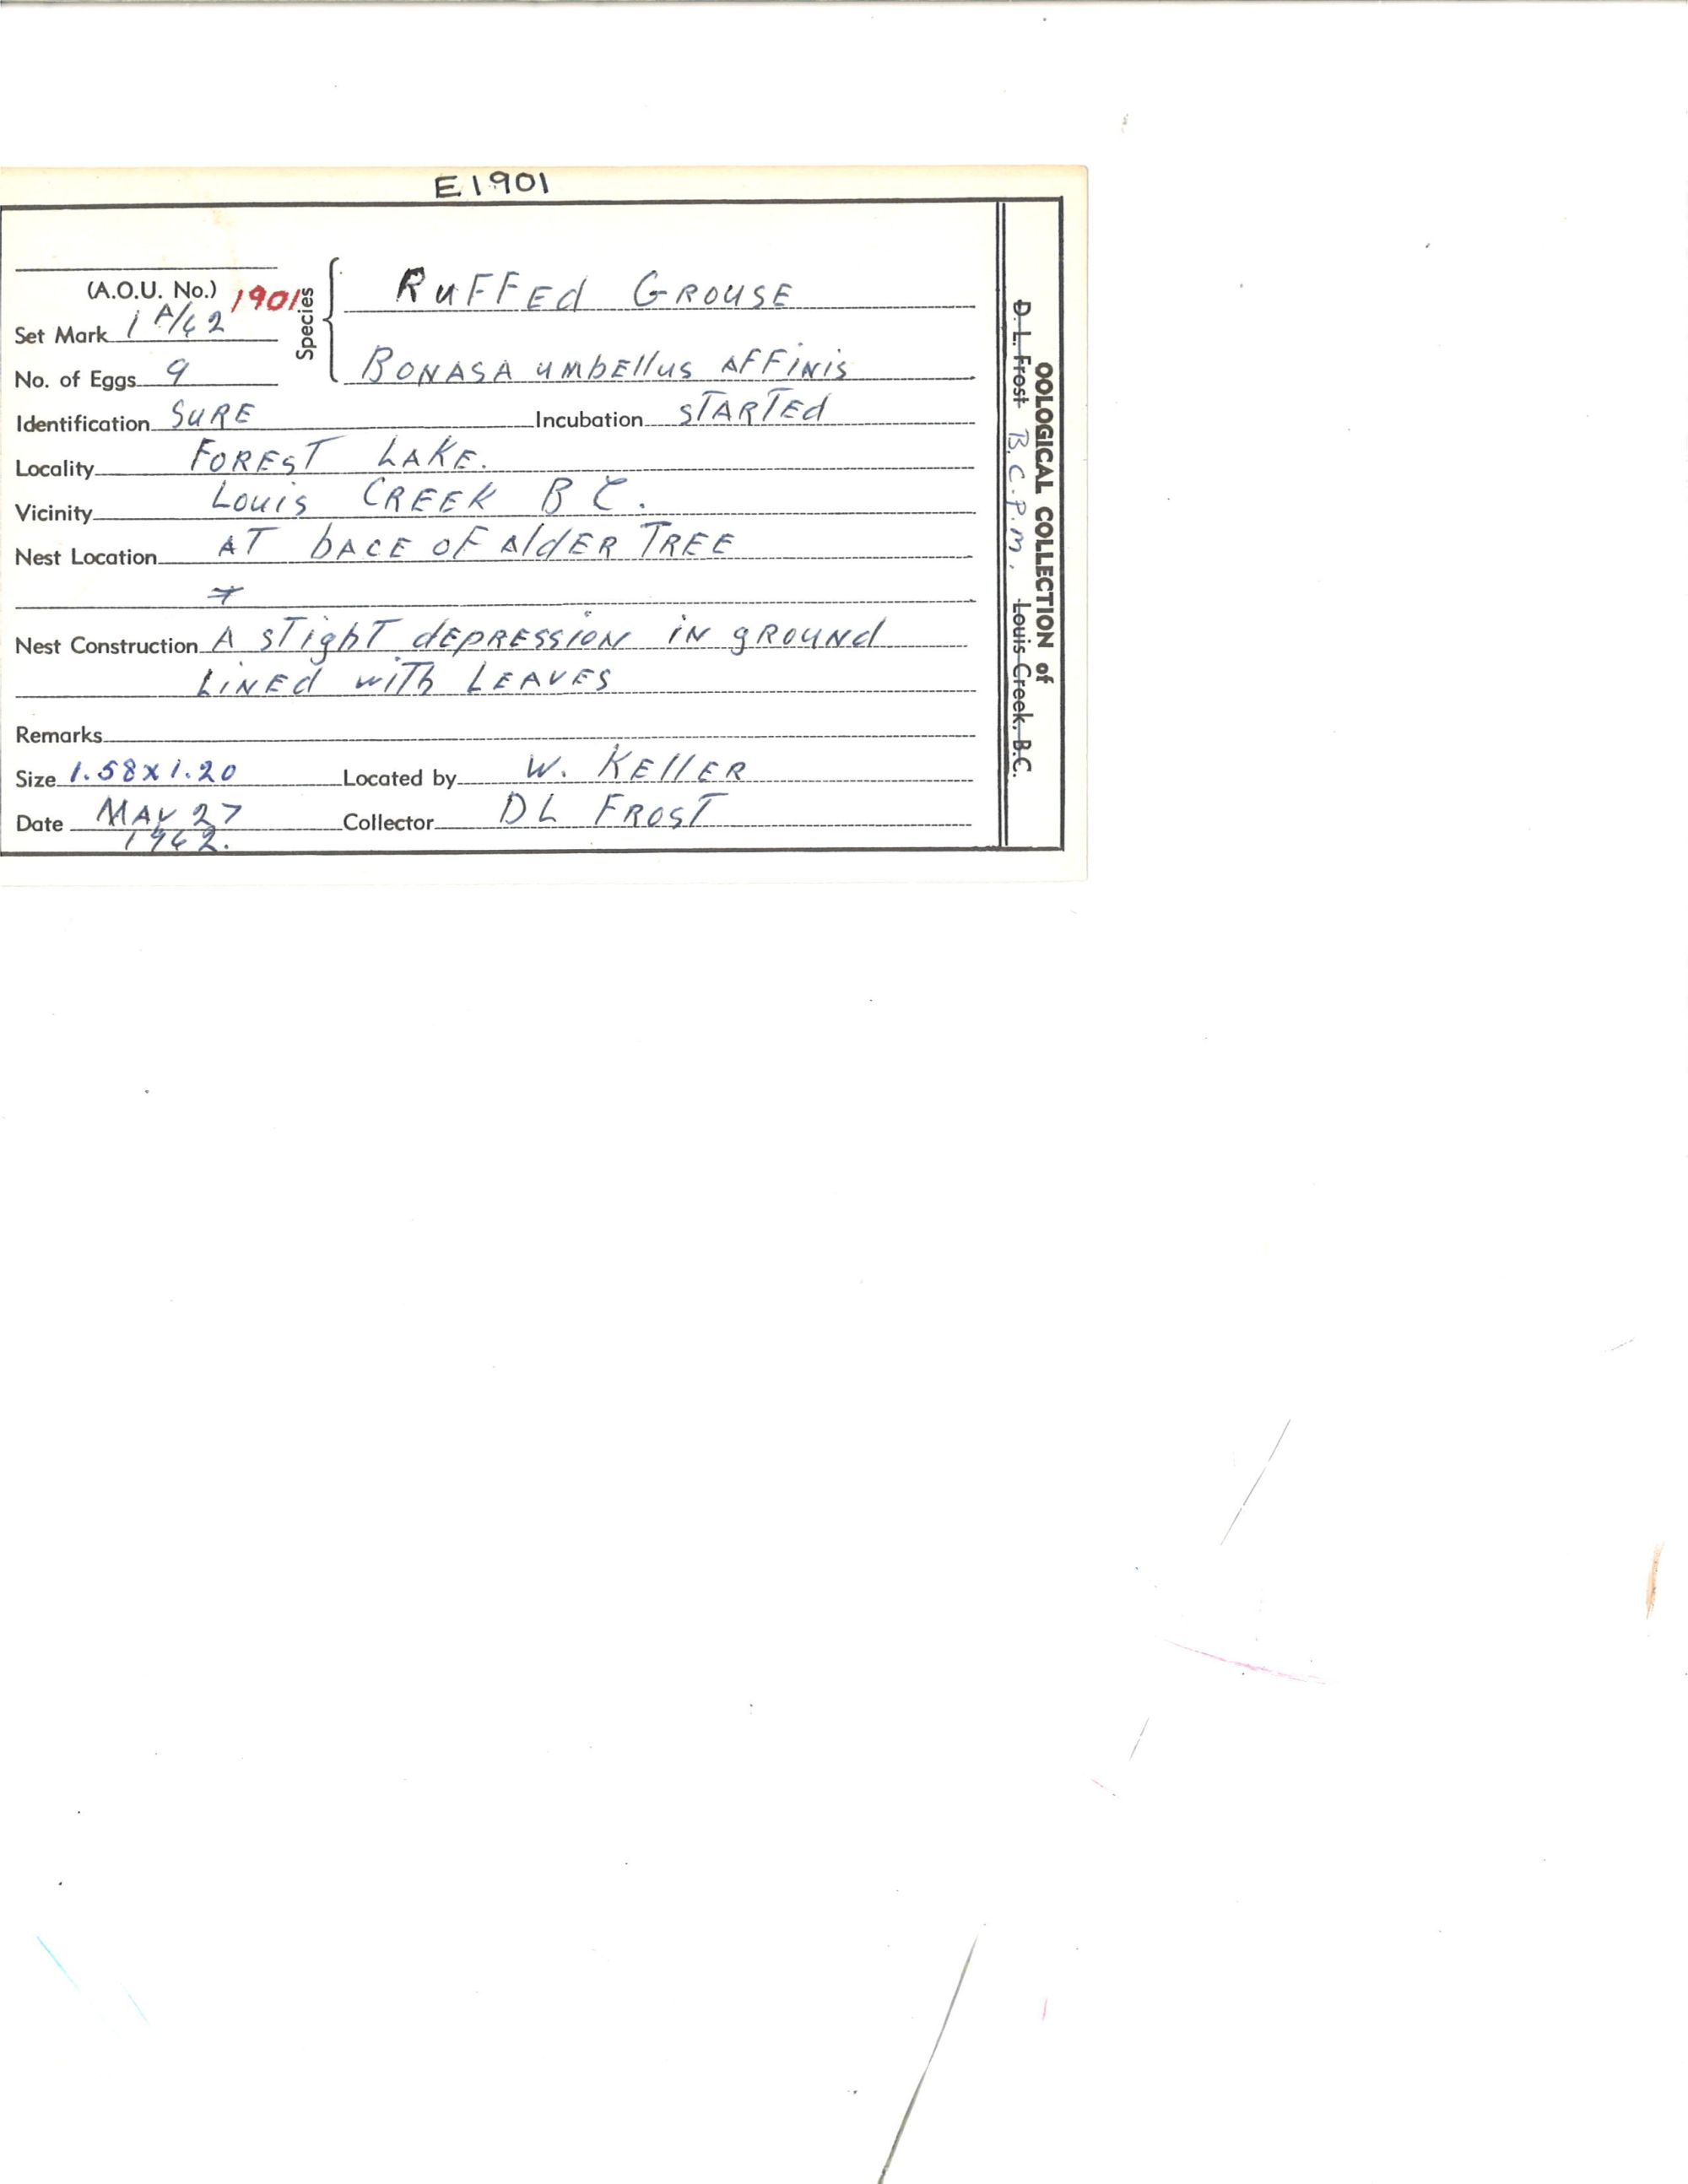 E1901
(A.O.U. No.) 1901
Species { RUFFEd GROUSE
Set Mark 1 A/62
BONASA umbEllus AFFINIS
No. of Eggs 9
Identification SURE Incubation STARTEd
Locality FOREST LAKE.
Vicinity Louis CREEK B C.
Nest Location AT bACE OF AldER TREE
Nest Construction A sTighT dEPRESSION iN gROUNd
LiNEd wiTh LEAVES
Remarks
Size 1.58 x 1.20 Located by W. KEllER
Date MAY 27 Collector DL FROST
1962.
OOLOGICAL COLLECTION of
D. L. Frost B.C.P.M. Louis Creek, B.C.